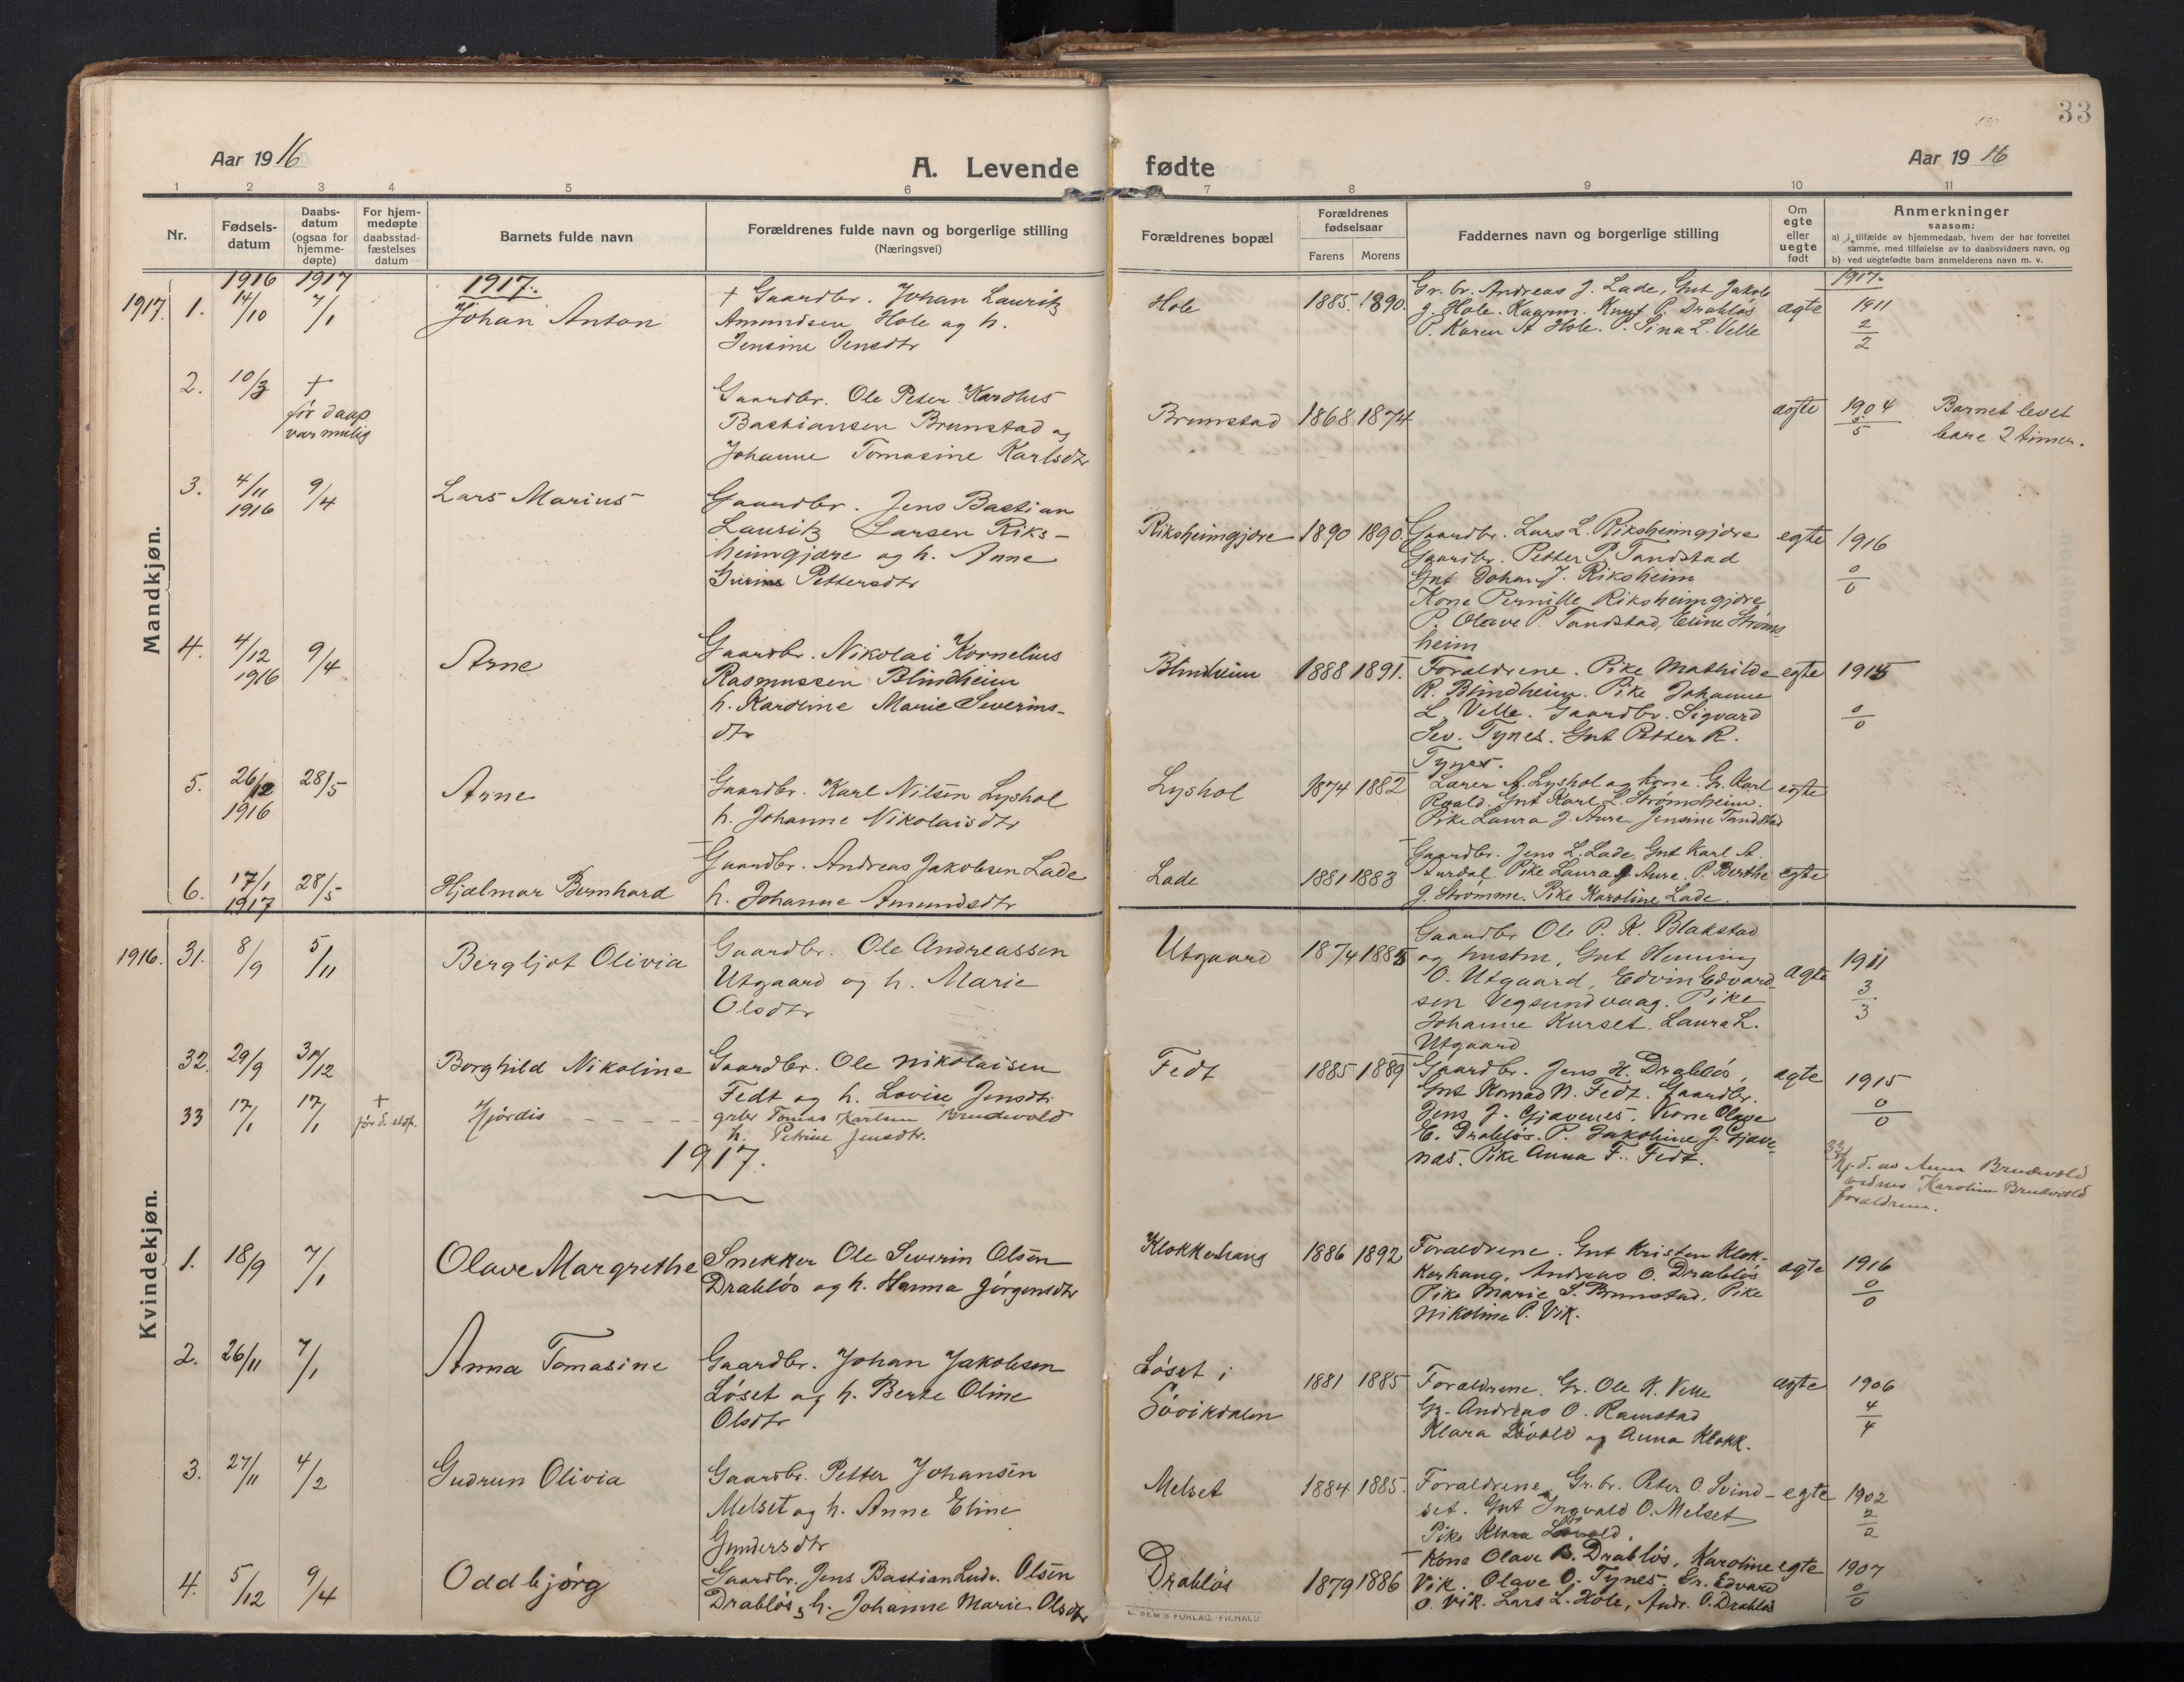 33
Aar 1916
A. Levende fødte
Aar 1916
1 2 3 4 5 6 7 8 9 10 11
Nr.
Fødsels-
datum
Daabs-
datum
(ogsaa for
hjemme-
døpte)
For hjem-
medøpte
daabsstad-
fæstelses
datum
Barnets fulde navn
Forældrenes fulde navn og borgerlige stilling
(Næringsvei)
Forældrenes bopæl
Forældrenes
fødselsaar
Farens Morens
Faddernes navn og borgerlige stilling
Om
egte
eller
uegte
født
Anmerkninger
saasom:
a) i tilfælde av hjemmedaab, hvem der har forrettet
samme, med tilføielse av to daabsvidners navn, og
b) ved uegtefødte barn anmelderens navn m. v.
Mandkjøn.
1916 1917 1917. 1917.
1917. 1. 14/10 7/1 Johan Anton
† Gaardbr. Johan Lauritz
Amundsen Hole og h.
Jensine Jensdtr
Hole 1885. 1890.
Gr. br. Andreas J. Lade, Gnt Jakob
J. Hole. Kaarm. Knut P. Drabløs
P. Karen A Hole. P. Sina L. Velle
ægte 1911 2/2
2. 10/3 †
før daap
var mulig
Gaardbr. Ole Peter Kardus
Bastiansen Brunstad og
Johanne Tomasine Karlsdtr
Brunstad 1868 1874
ægte 1904 5/5
Barnet levet
bare 2 timer.
3. 4/11 9/4 Lars Marius
1916
Gaardbr. Jens Bastian
Lauritz Larsen Riks-
heimgjære og h. Anne
Gurine Pettersdtr
Riksheimgjære 1890 1890.
Gaardbr. Lars L. Riksheimgjære
Gaardbr. Petter P. Tandstad
Gnt Johan J. Riksheim
Kone Pernille Riksheimgjære
P. Olave P. Tandstad, Eline Strøms-
heim
egte 1916 0/0
4. 4/12 9/4 Arne
1916
Gaardbr. Nikolai Kornelius
Rasmussen Blindheim
h. Karoline Marie Severins-
dtr
Blindheim 1888 1891.
Forældrene. Pike Mathilde
R. Blindheim. Pike Johanne
L. Velle. Gaardbr. Sigvard
Sev. Tynes. Gnt Petter R.
Tynes.
egte 1915 0/0
5. 26/12 28/5 Arne
1916
Gaardbr. Karl Nilsen Lyshol
h. Johanne Nikolaisdtr
Lyshol 1874 1882
Lærer A. Lyshol og kone. Gr. Karl
Roald. Gnt Karl L. Strømsheim.
Pike Laura J. Aure. Jensine Tandstad
egte
6. 17/1 28/5 Hjælmar Bernhard
1917
Gaardbr. Andreas Jakobsen Lade
h. Johanne Amundsdtr
Lade 1881 1883
Gaardbr. Jens L. Lade, Gnt Karl A.
Aurdal. Pike Laura J. Aure. P. Berthe
J. Strømme. Pike Karoline Lade.
egte
Kvindekjøn.
1916. 31. 8/9 5/11 Bergljot Olivia
Gaardbr. Ole Andreassen
Utgaard og h. Marie
Olsdtr
Utgaard 1874 1885
Gaardbr Ole P. K. Blakstad
og hustru, Gnt Henning
O. Utgaard, Edvin Edvard-
sen Vegsundvaag. Pike
Johanne Kurset. Laura L.
Utgaard
ægte 1911 3/3
32. 29/9 31/12 Borghild Nikoline
Gaardbr. Ole Nikolaisen
Fedt og h. Lovise Jensdtr
Fedt 1885 1889
Gaardbr. Jens H. Drabløs,
Gnt Konrad N. Fedt. Gaardbr.
Jens J. Gjævenes. Kone Olave
E. Drabløs. P. Jakobine J. Gjæve-
næs. Pike Anna F. Fedt.
ægte 1915 0/0
33 17/1 17/1 † før d. stdf. Hjørdis
grbr Tomas Karlsen Brudevold
h. Petrine Jensdtr.
33/ Hj. d. av Anna Brudevold
vidner Karoline Brudevold
forældrene.
1917.
1. 18/9 7/1 Olave Margrethe
Snekker Ole Severin Olsen
Drabløs og h. Hanna Jørgensdtr
Klokkerhaug 1886 1892
Forældrene. Gnt Kristen Klok-
kerhaug, Andreas O. Drabløs
Pike Marie S. Brunstad. Pike
Nikoline P. Vik.
ægte 1916 0/0
2. 26/11 7/1 Anna Tomasine
Gaardbr. Johan Jakobsen
Løset og h. Berte Oline
Olsdtr
Løset i
Søvikdalen
1881 1885
Forældrene. Gr. Ole K. Velle
Gr. Andreas O. Ramstad
Klara Løvold og Anna Klokk.
ægte 1906 4/4
3. 27/11 4/2 Gudrun Olivia
Gaardbr. Petter Johansen
Melset og h. Anne Eline
Gundersdtr
Melset 1884 1885.
Forældrene, Gr. br. Peter O. Svind-
set. Gnt Ingvald O. Melset
Pike Klara Løvold.
egte 1902 2/2
4. 5/12 9/4 Oddbjørg
Gaardbr. Jens Bastian Ludv. Olsen
Drabløs, h. Johanne Marie Olsdtr
Drabløs 1879 1886
Kone Olave B. Drabløs, Karoline
Vik. Olave O. Tynes. Gr. Edvard
O. Vik. Lars L. Hole, Andr. O. Drabløs
egte 1907 0/0
E. SEM'S FORLAG, FR.HALD